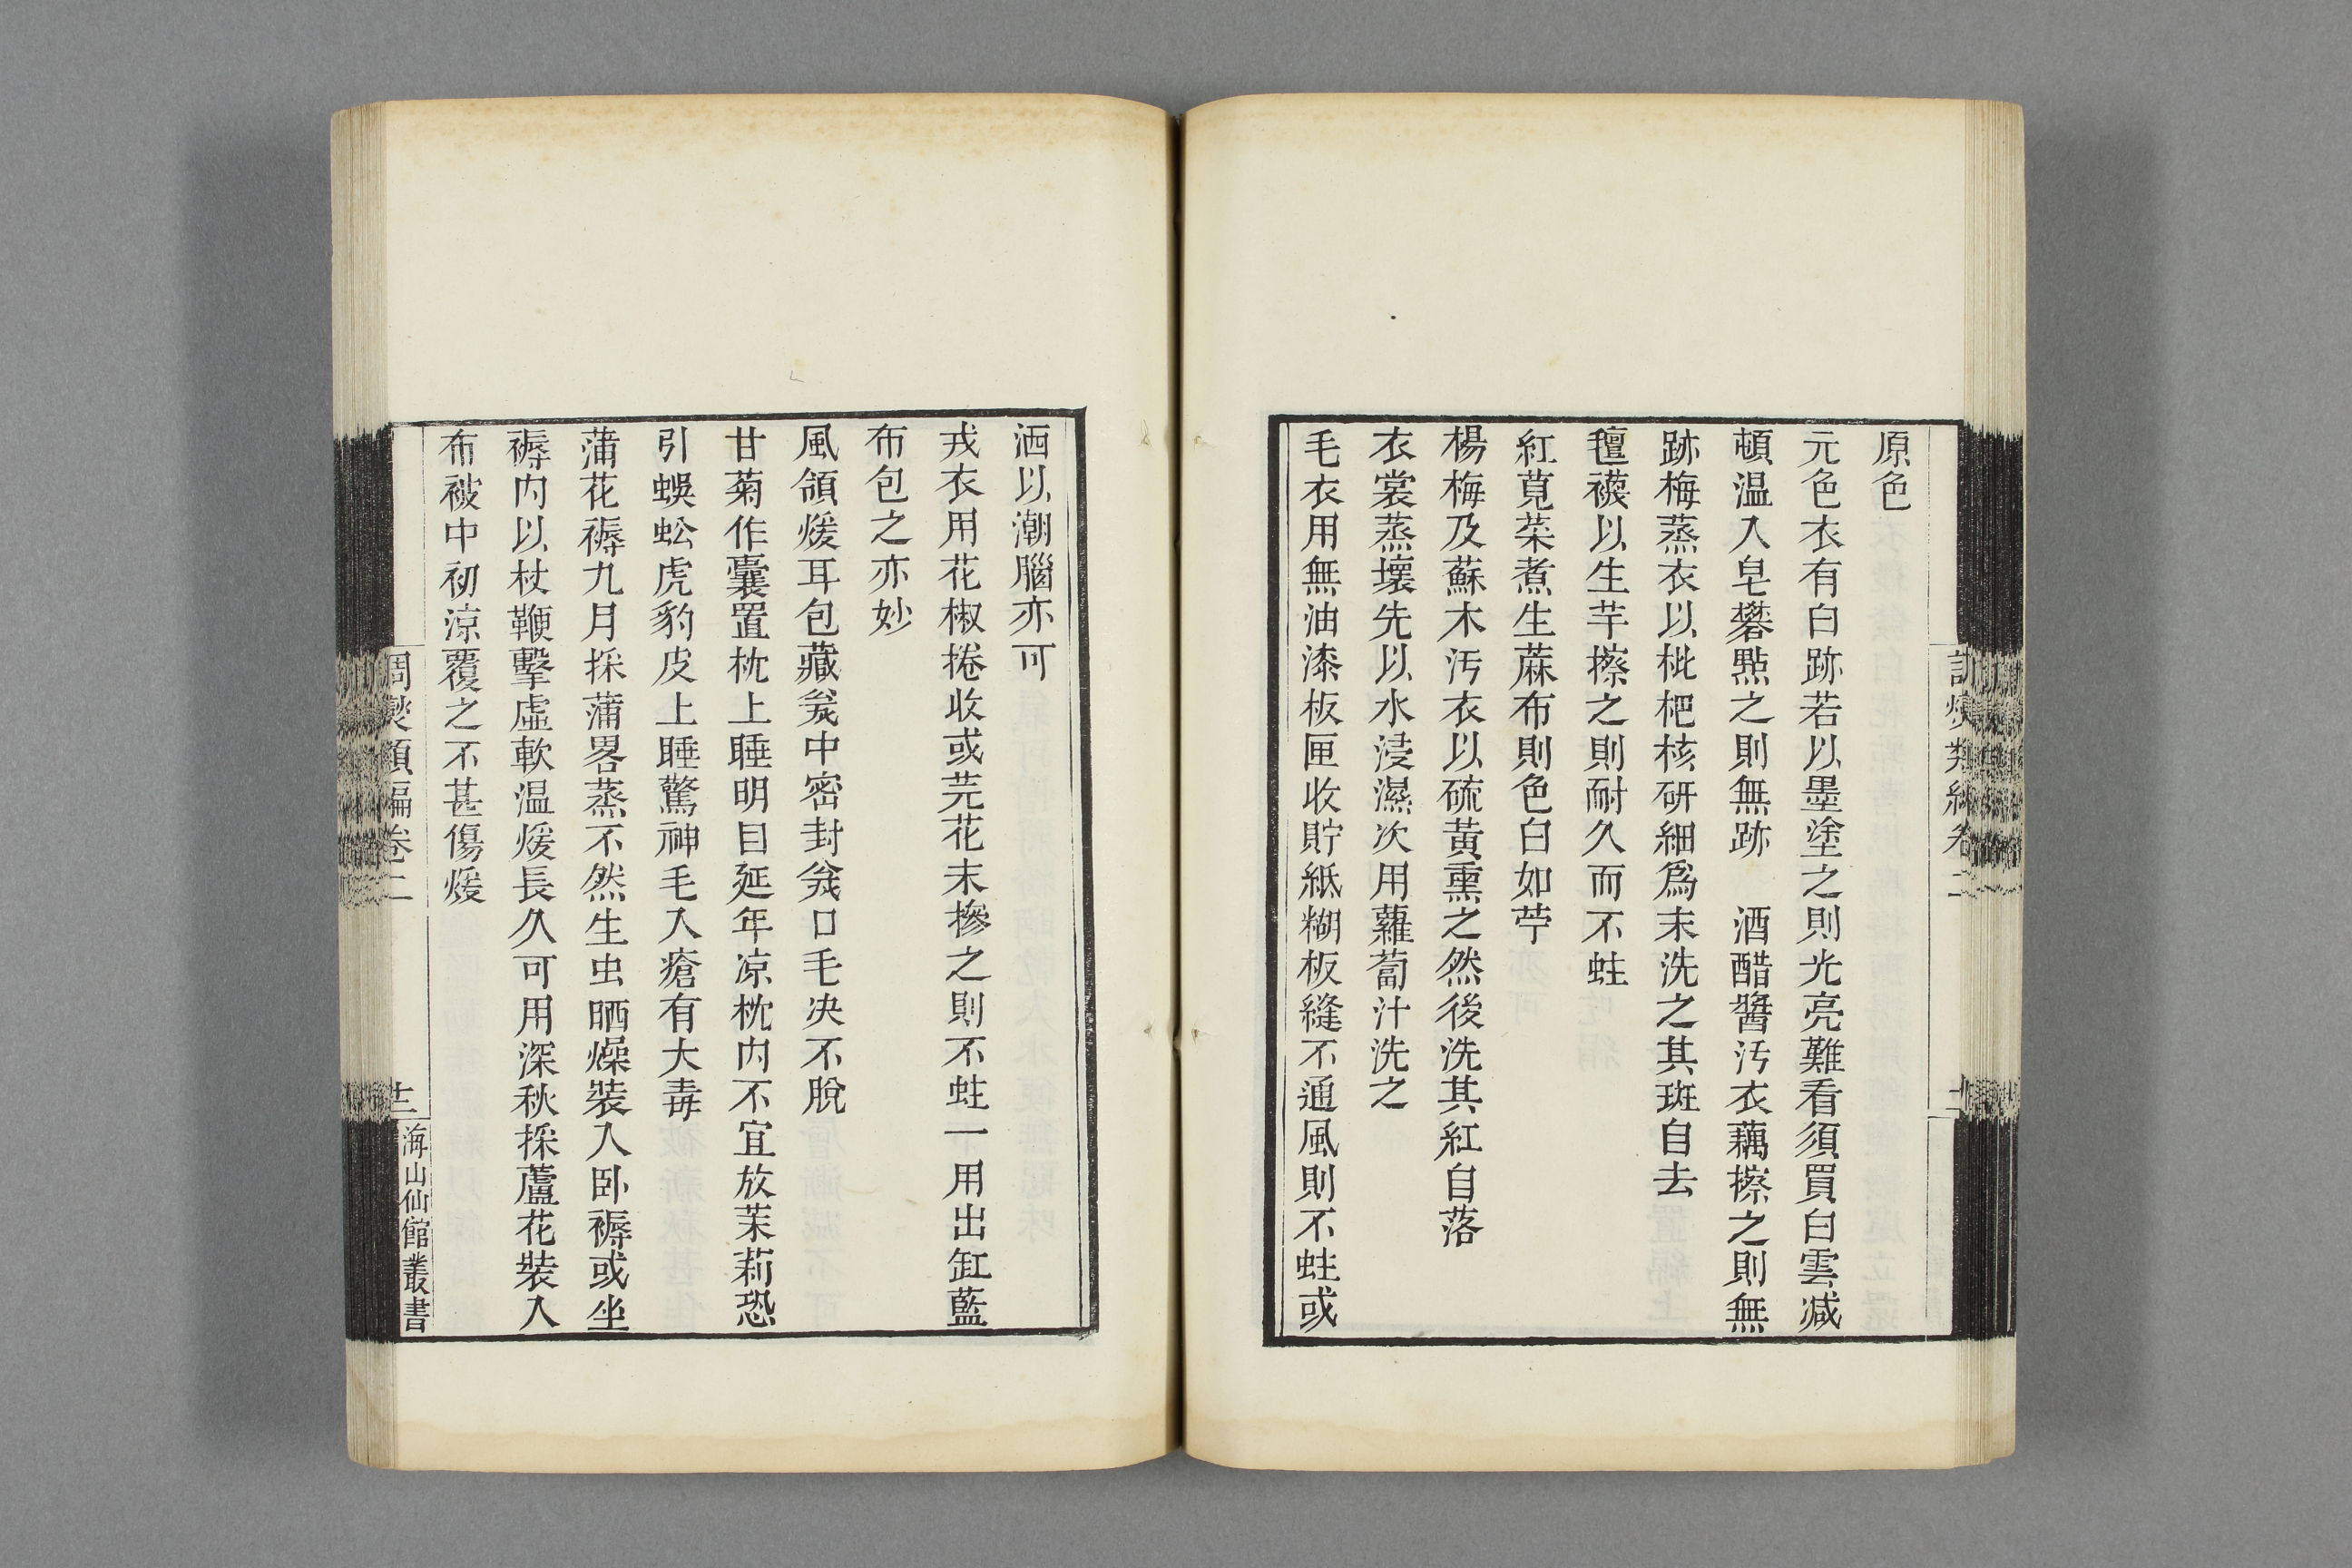 原色
元色衣有白跡若以墨塗之則光亮難看須買白雲減
頓温入皂礬㸃之則無跡　酒醋醬汚衣藕擦之則無
跡梅蒸衣以枇杷核研細爲末洗之其斑自去
氊襪以生芋擦之則耐久而不蛀
紅莧菜煮生蔴布則色白如苧
楊梅及蘇木汚衣以硫黃熏之然後洗其紅自落
衣裳蒸壞先以水浸濕次用蘿蔔汁洗之
毛衣用無油漆板匣收貯紙糊板縫不通風則不蛀或
洒以潮腦亦可
戎衣用花椒捲收或芫花末摻之則不蛀一用出缸藍
布包之亦妙
風領煖耳包藏瓮中密封瓮口毛决不脫
甘菊作囊置枕上睡明目延年凉枕内不宜放茉莉恐
引蜈蚣虎豹皮上睡驚神毛入瘡有大毒
蒲花褥九月採蒲畧蒸不然生虫晒燥裝入卧褥或坐
褥内以杖鞭擊虛軟温煖長久可用深秋採蘆花裝入
布被中初涼覆之不甚傷煖
調燮類編卷二
海山仙館叢書